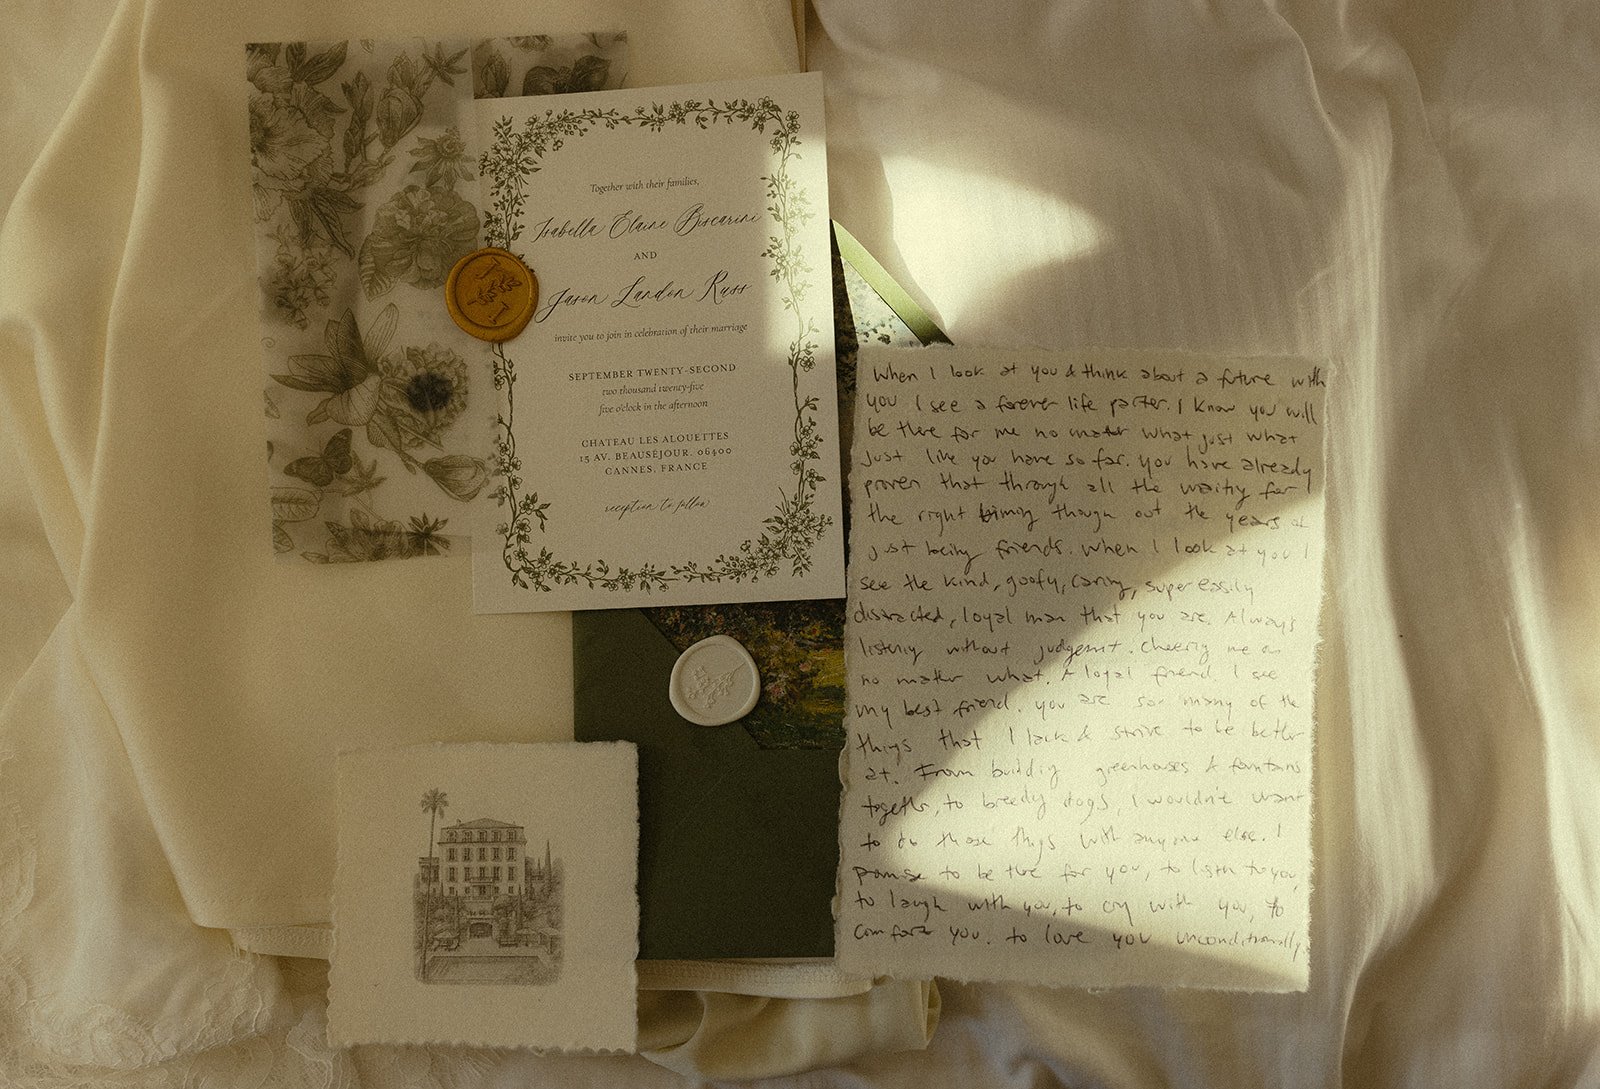 Together with their families,
Isabella Elaine Biscarini
AND
Jason Landon Russ
invite you to join in celebration of their marriage
SEPTEMBER TWENTY-SECOND
two thousand twenty-five
five o'clock in the afternoon
CHATEAU LES ALOUETTES
15 AV. BEAUSÉJOUR, 06400
CANNES, FRANCE
reception to follow
When I look at you & think about a future with
you I see a forever life parter. I know you will
be there for me no matter what just what
just like you have so far. you have already
proven that through all the waiting for
the right timing though out the years of
just being friends. When I look at you I
see the kind, goofy, caring, super easily
distracted, loyal man that you are. Always
listening without judgement. Cheering me on
no matter what. A loyal friend. I see
my best friend. you are so many of the
things that I lack & strive to be better
at. From building greenhouses & fountains
together, to breedy dogs, I wouldn't want
to do those things with anyone else. I
promise to be there for you, to listen to you,
to laugh with you, to cry with you, to
comfort you. to love you unconditionally.